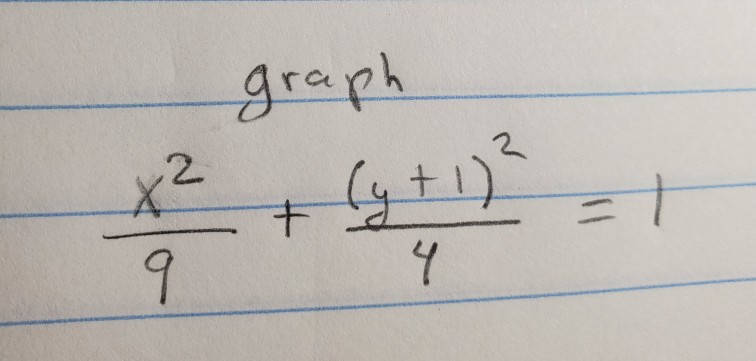 graph
x²/9 + (y+1)²/4 = 1